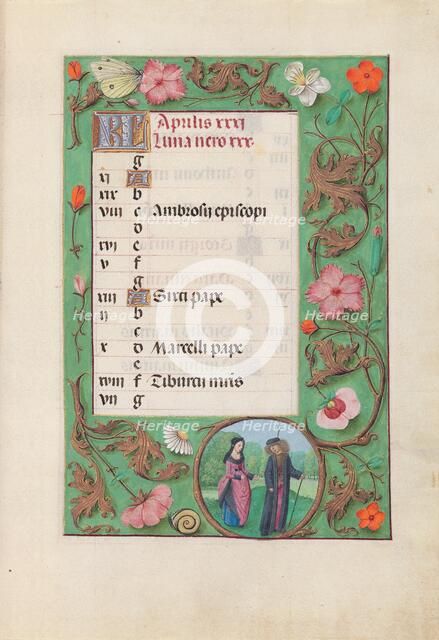 KL Aprilis xxxi
Luna nero xxx
g
xi A
xix b
viii c Ambrosij episcopi
d
xvi e
v f
g
xiii A Sixti pape
ii b
c
x d Marcelli pape
e
xviii f Tiburcii mris
vii g
heritage images
Heritage
Heritage
Heritage
Heritage
Heritage
Heritage